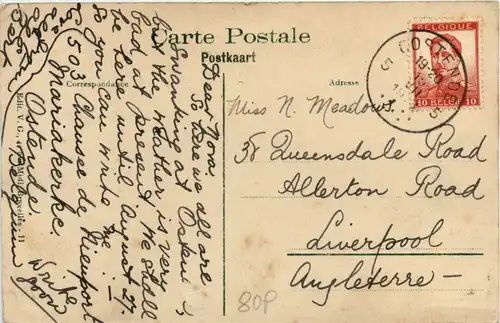 Carte Postale
Postkaart
Correspondance
Adresse
Dear Nora,
So here we all are
Swanking at Ostend,
but the weather is very
bad at present. We shall
be here until August 27.
So you can write me :—
503 Chausee de Nieuport
Mariakerke,
Ostende.
Belgium
Write
soon
Edit. V. G.
11
BELGIQUE
10 BELGIË 10
OOSTENDE
Miss N. Meadows.
38 Queensdale Road
Allerton Road
Liverpool
Angleterre —
80P